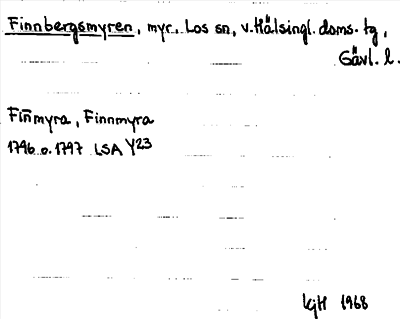 Finnbergsmyren, myr, Los sn, v. Hälsingl. doms. tg,
Gävl. l.
Fin̄myra, Finnmyra
1796 o. 1797 LSA Y23
KjH 1968